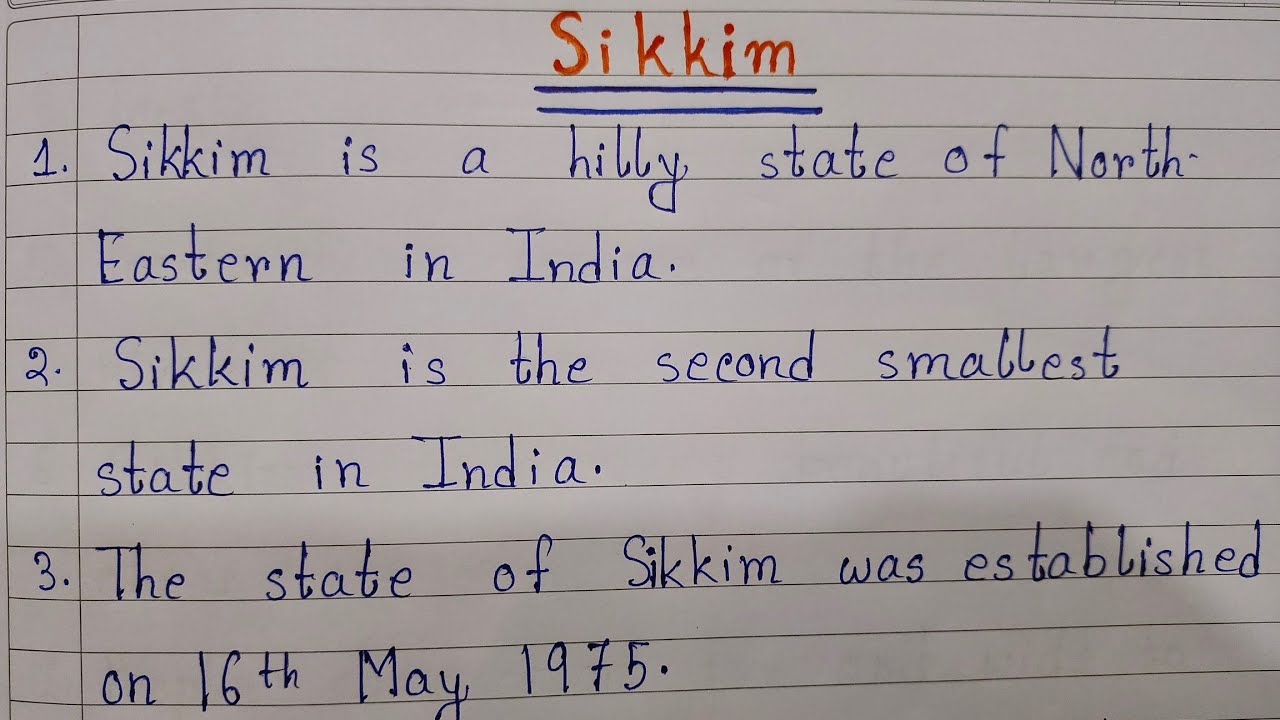 Sikkim
1. Sikkim is a hilly state of North-
Eastern in India.
2. Sikkim is the second smallest
state in India.
3. The state of Sikkim was established
on 16th May 1975.